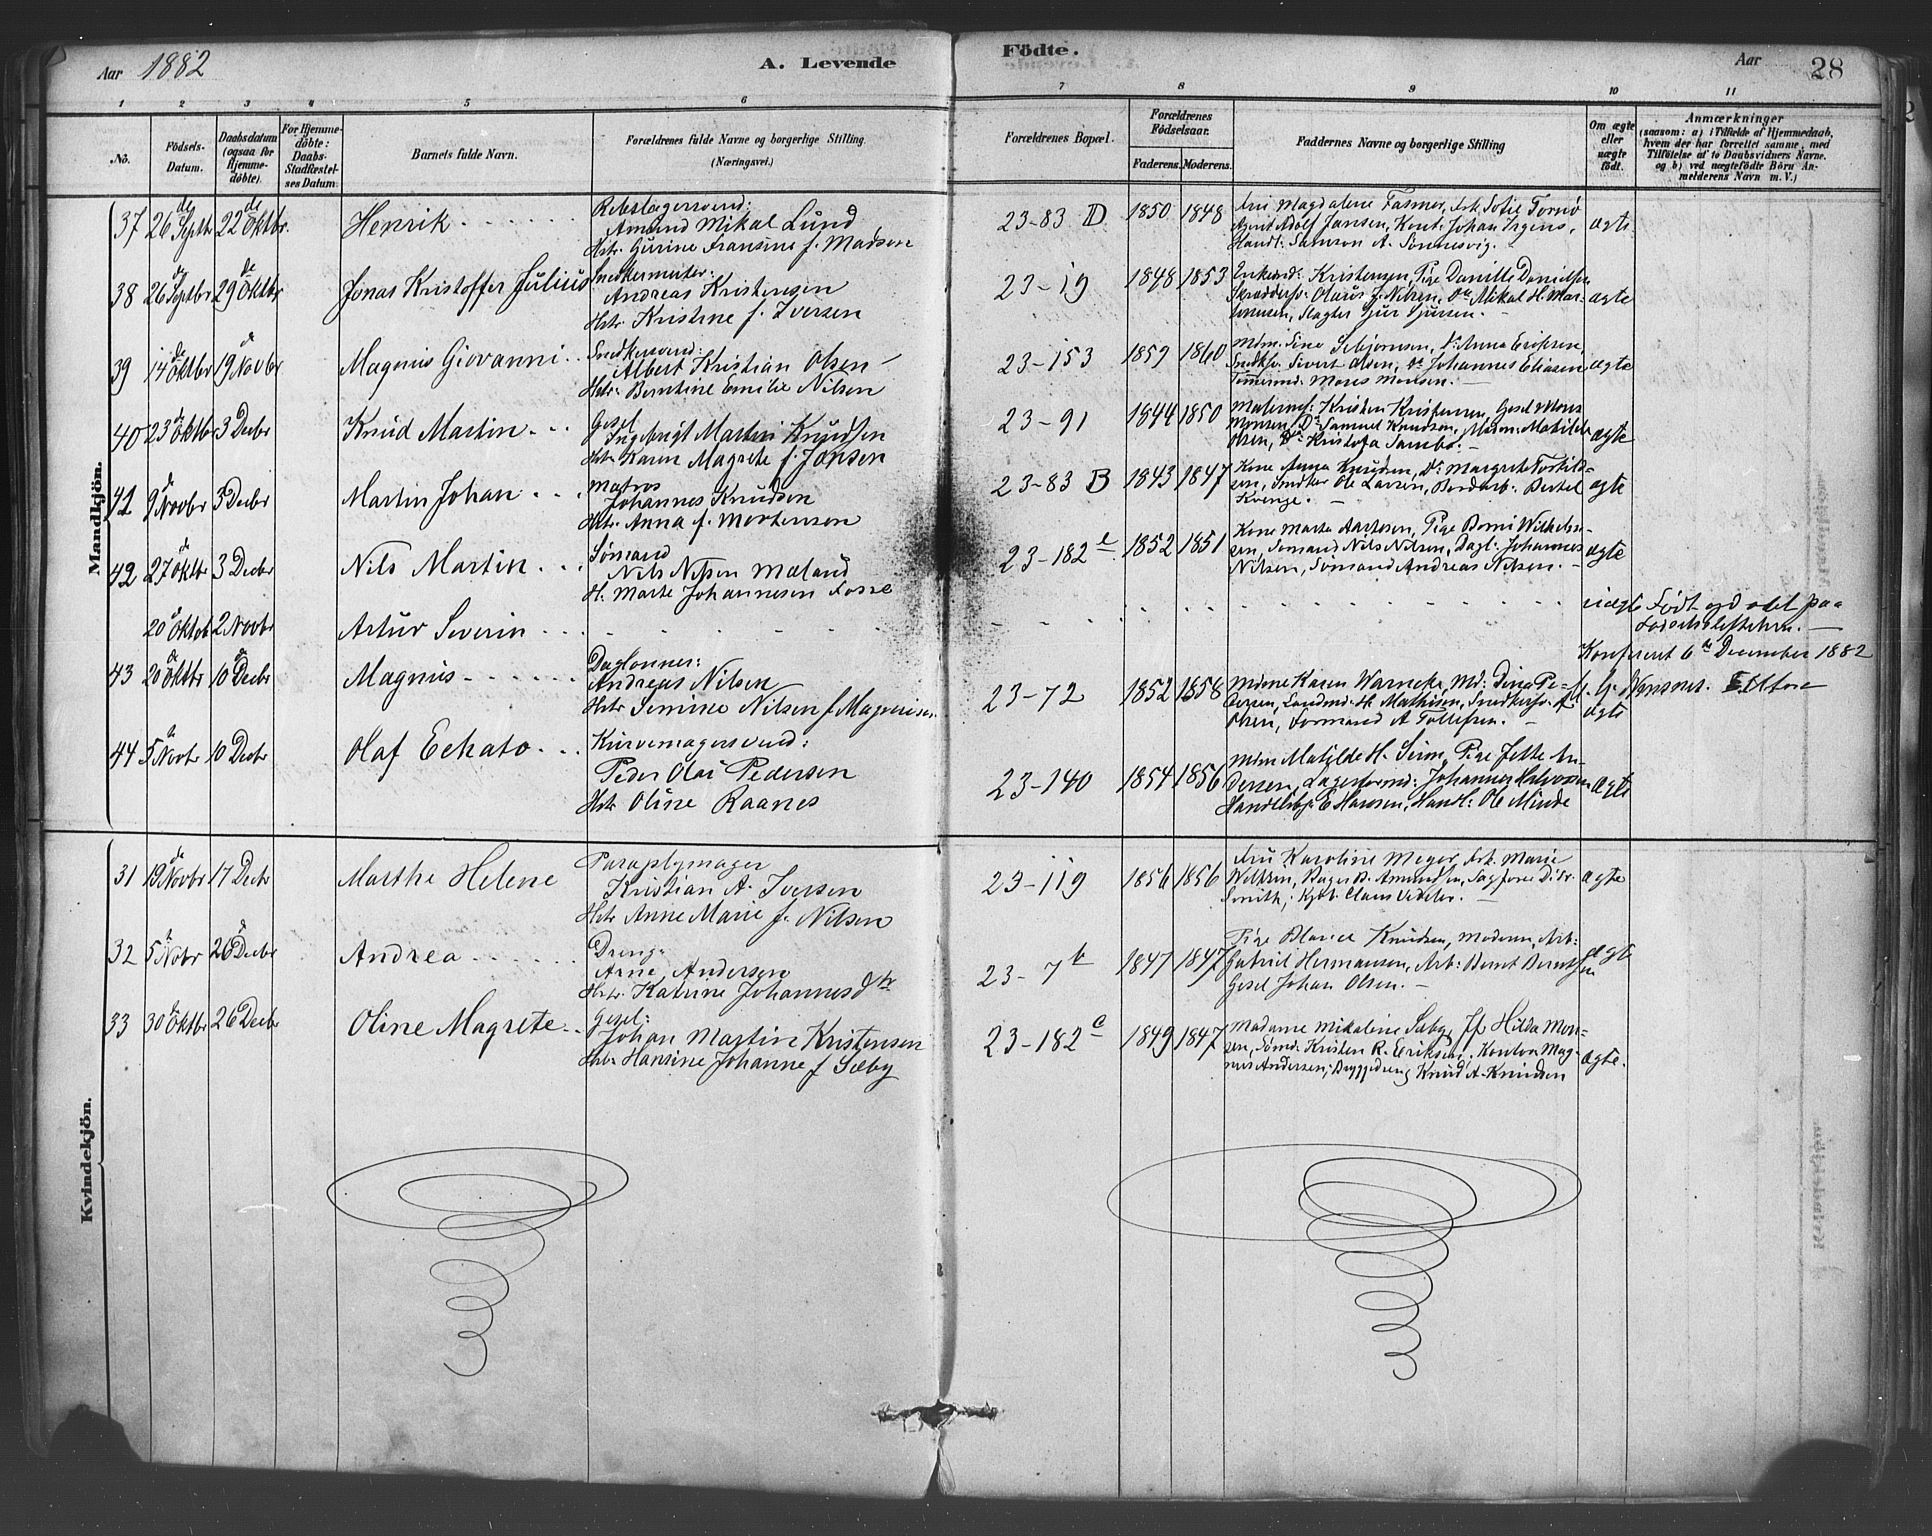 Aar 1882
A. Levende
Födte.
Aar
28
1 2 3 4 5 6 7 8 9 10 11
No.
Födsels-
Datum.
Daabsdatum
(ogsaa for
Hjemme-
döbte).
For Hjemme-
döbte:
Daabs-
Stadfæstel-
ses Datum.
Barnets fulde Navn.
Forældrenes fulde Navne og borgerlige Stilling
(Næringsvei.)
Forældrenes Bopæl.
Forældrenes
Födselsaar.
Faderens. Moderens.
Faddernes Navne og borgerlige Stilling
Om ægte
eller
uægte
födt.
Anmærkninger
(saasom: a) i Tilfælde af Hjemmedaab,
hvem der har forrettet samme, med
Tilföielse af to Daabsvidners Navne.
og b) ved uægtefödte Börn An-
melderens Navn m. V.)
Mandkjön.
37 26de Septbr 22de Oktbr. Henrik
Rebslagersvend:
Amund Mikal Lund
Hstr. Gurine Fransine f. Madsen
23-83 D 1850 1848
Fru Magdalene Fasmer, Frk. Sofie Tornö
Agent Adolf Jansen, Kont: Johan Irgens,
Handl: Samson A. Sönnesvig.
ægte
38 26de Septbr 29de Oktbr Jonas Kristoffer Julius
Snedkermester:
Andreas Kristensen
Hstr. Kristine f. Iversen
23-19 1848 1853
Kristensen, Pige Danitte Danielsen
Skrædders: Olaus J. Nilsen, Do Mikal H. Mar-
Slagter Gjur Gjursen.
ægte
39 14de Oktbr 19de Novbr Magnus Giovanni
Snedkersvend:
Albert Kristian Olsen
Hstr. Berntine Emilie Nilsen
23-153 1859 1860
Mdm: Sine Do Anna
Snedksv. Sivert Olsen, Do Johannes Eliasen
Tömmermd: Mons Monsen.
ægte
40 23de Oktbr 3 Decbr Knud Martin
Gesel
Ingebrigt Martin Knudsen
Hstr. Karen Magrete f. Jansen
23-91 1844 1850
Kristen Kristensen, Gesel Mons
Monsen, Do Samuel Knudsen, Madm: Matilde
Olsen, Do Kristofa
ægte
41 9de Novbr 3 Decbr Martin Johan
Matros
Johannes Knudsen
Hstr. Anna f. Mortensen
23-83 B 1843 1847
Kone Anna Knudsen, Do Margrete
Snedker Ole Larsen, Bordarb: Bertel
Kvenge.
ægte
42 27de Oktbr 3 Decbr Nils Martin
Sömand
Nils Nilsen Mæland
H. Marte Johannesen Fosse
23-182 e 1852 1851
Kone Marte Aartesen, Pige Berni Wilhelm-
sen, Sömand Nils Nilsen, Dagl: Johannes
Nilsen, Sömand Andreas Nilsen.
ægte
20de Oktob 2 Novbr Artur Severin
uægte Födt og döbt paa
Födselsstiftelsen.
Konfereret 6te December 1882
43 20de Oktbr 10de Decbr Magnus
Daglönner:
Andreas Nilsen
Hstr Semine Nilsen f Magnesen
23-72 1852 1858
Mdme Karen Warncke, Md: Dina Pe-
dersen, Landmd: H. Mathisen, Snedkersv. A.
Olsen, Formand A Tollefsen.
ægte
44 5te Novbr 10 Decbr Olaf Echato
Kurvemagersvend:
Peder Olai Pedersen
Hstr. Oline Raanes
23-140 1854 1856
Mdm Matilde H. Seim, Pige Jette An-
dersen, Lagerformd: Johannes Halvorsen
Handelsbj: E Hansen, Handl: Ole Minde
ægte
Kvindekjön.
31 19de Novbr 17 Decbr Marthe Helene
Paraplymager
Kristian A. Iversen
Hstr Anne Marie f. Nilsen
23-119 1856 1856
Fru Karoline Meyer, Frk. Marie
Bager B. Amundsen, Sagförer D. Fr.
Smith, Kjöb. Claus Vedeler.
ægte
32 5te Nobr 26de Decbr Andrea
Dreng:
Arne Andersen
Hstr. Katrine Johannesdtr
23-7 b 1847 1847
Pige Blance Knudsen, Moderen, Arb:
Gabriel Hermansen, Arb: Bernt Berntsen
Gesel Johan Olsen.
ægte
33 30de Oktbr 26 Decbr Oline Magrete
Gesel:
Johan Martin Kristensen
Hstr Hansine Johanne f Sæby
23-182 c 1849 1847
Madame Mikaline Sæby, Jf Hilda Mon-
sen, Sömd: Kristen R. Eriksen, Kontor: Mag-
nus Andersen, Byggedreng Knud A. Knudsen
ægte.